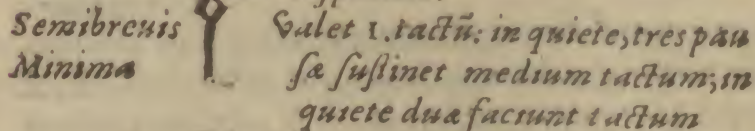 Semibreuis Valet 1. tactũ: in quiete, tres pau
Minima sæ sustinet medium tactum; in
quiete duæ faciunt tactum